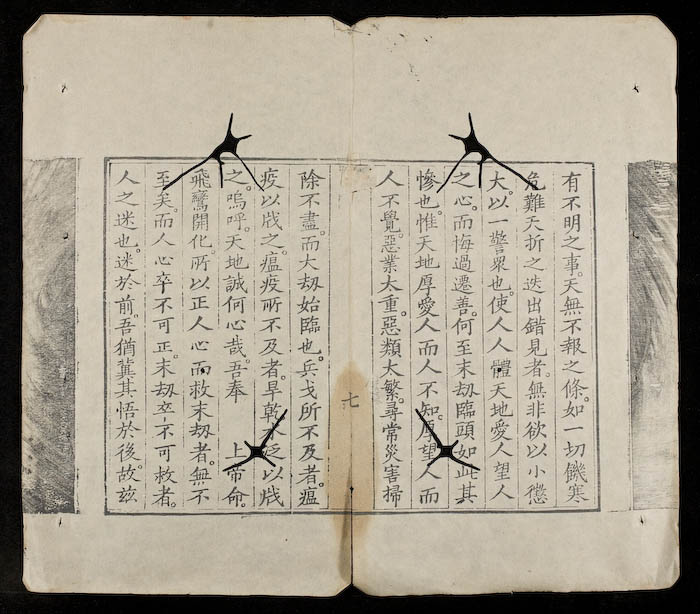 有不明之事。天無不報之條。如一切饑寒
危難夭折之迭出錯見者。無非欲以小懲
大。以一警眾也。使人人體天地愛人望人
之心。而悔過遷善。何至末刼臨頭如此其
慘也。惟天地厚愛人而人不知。厚望人而
人不覺。惡業太重。惡類太繁。尋常災害掃
七
除不盡。而大刼始臨也。兵戈所不及者。瘟
疫以戕之。瘟疫所不及者。旱乾水泛以戕
之。嗚呼。天地誠何心哉。吾奉 上帝命。
飛鸞開化。所以正人心而救末刼者。無不
至矣。而人心卒不可正。末刼卒不可救者。
人之迷也。迷於前。吾猶冀其悟於後。故茲